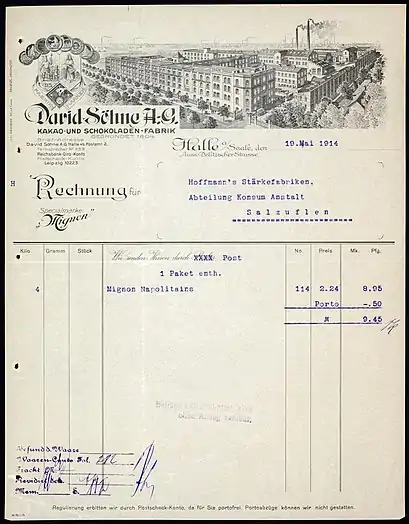 David Söhne A.-G.
KAKAO-UND SCHOKOLADEN-FABRIK
GEGRÜNDET 1804
Brief-Adresse:
David Söhne A-G Halle a/S Postamt 2.
Reichsbank-Giro-Konto
Postscheck-Konto
Leipzig 10223
Halle a/Saale, den 19.Mai 1914
Aeuss. Delitzscher-Strasse
H
Rechnung für
Specialmarke:
"Mignon"
Hoffmann's Stärkefabriken,
Abteilung Konsum Anstalt
Salzuflen
Kilo Gramm Stück Wir sandten Ihnen durch XXXX Post No. Preis Mk. Pfg.
1 Paket enth.
4 Mignon Napolitains 114 2.24 8.95
Porto -.50
M 9.45
Befund d. Waare
Waaren-Conto Fol.
Fracht
Revidirt
Mem. S.
Regulierung erbitten wir durch Postscheck-Konto, da für Sie portofrei. Portoabzüge können wir nicht gestatten.